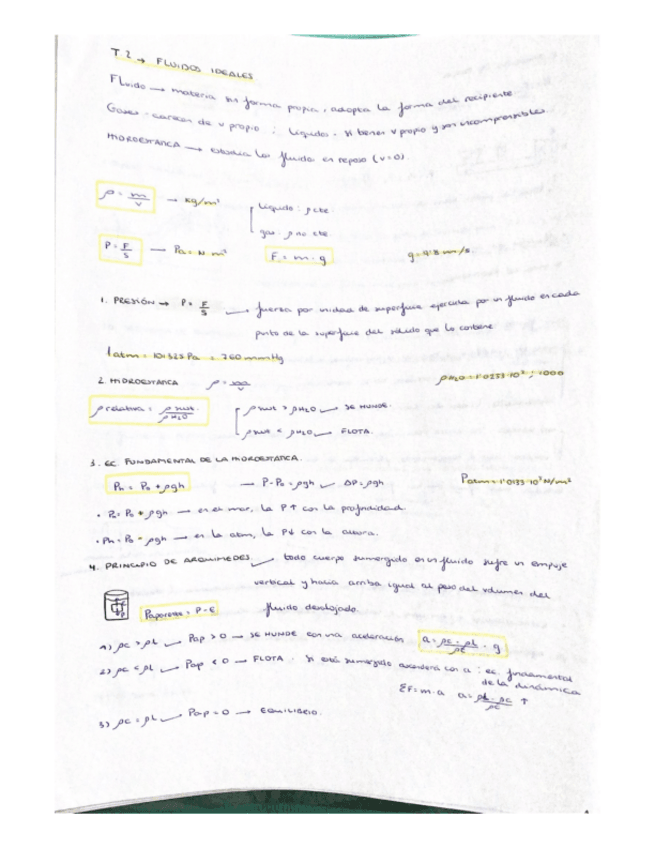 T.2 → FLUIDOS IDEALES
Fluido → materia sin forma propia, adopta la forma del recipiente.
Gases: carecen de v propio ; líquidos: sí tienen v propio y son incompresibles.
HIDROESTÁTICA → estudia los fluidos en reposo (v=0).
ρ = m/v → kg/m³
líquido: ρ cte
gas: ρ no cte
P = F/S → Pa = N·m²
F = m·g
g = 9'8 m/s
1. PRESIÓN → P = F/S → fuerza por unidad de superficie ejercida por un fluido en cada
punto de la superficie del sólido que lo contiene
1atm = 101325 Pa = 760 mmHg
2. HIDROESTÁTICA ρ = m/v
ρ H2O = 1'0133·10³ ; 1000
ρ relativa = ρ sust/ρ H2O
ρ sust > ρ H2O → SE HUNDE
ρ sust < ρ H2O → FLOTA.
3. EC. FUNDAMENTAL DE LA HIDROESTÁTICA.
Ph = P0 + ρgh → P-P0 = ρgh → ΔP = ρgh
Patm = 1'0133·10⁵ N/m²
• P0 + ρgh → en el mar, la P↑ con la profundidad.
• Ph = P0 - ρgh → en la atm, la P↓ con la altura.
4. PRINCIPIO DE ARQUÍMEDES → todo cuerpo sumergido en un fluido sufre un empuje
vertical y hacia arriba igual al peso del volumen del
fluido desalojado.
Paparente = P - E
1) ρc > ρL → Pap > 0 → SE HUNDE con una aceleración a = ρc - ρL/ρc · g
2) ρc < ρL → Pap < 0 → FLOTA. Si está sumergido ascenderá con a : ec. fundamental
de la dinámica
ΣF = m·a a = ρL - ρc/ρc ↑
3) ρc = ρL → Pap = 0 → EQUILIBRIO.